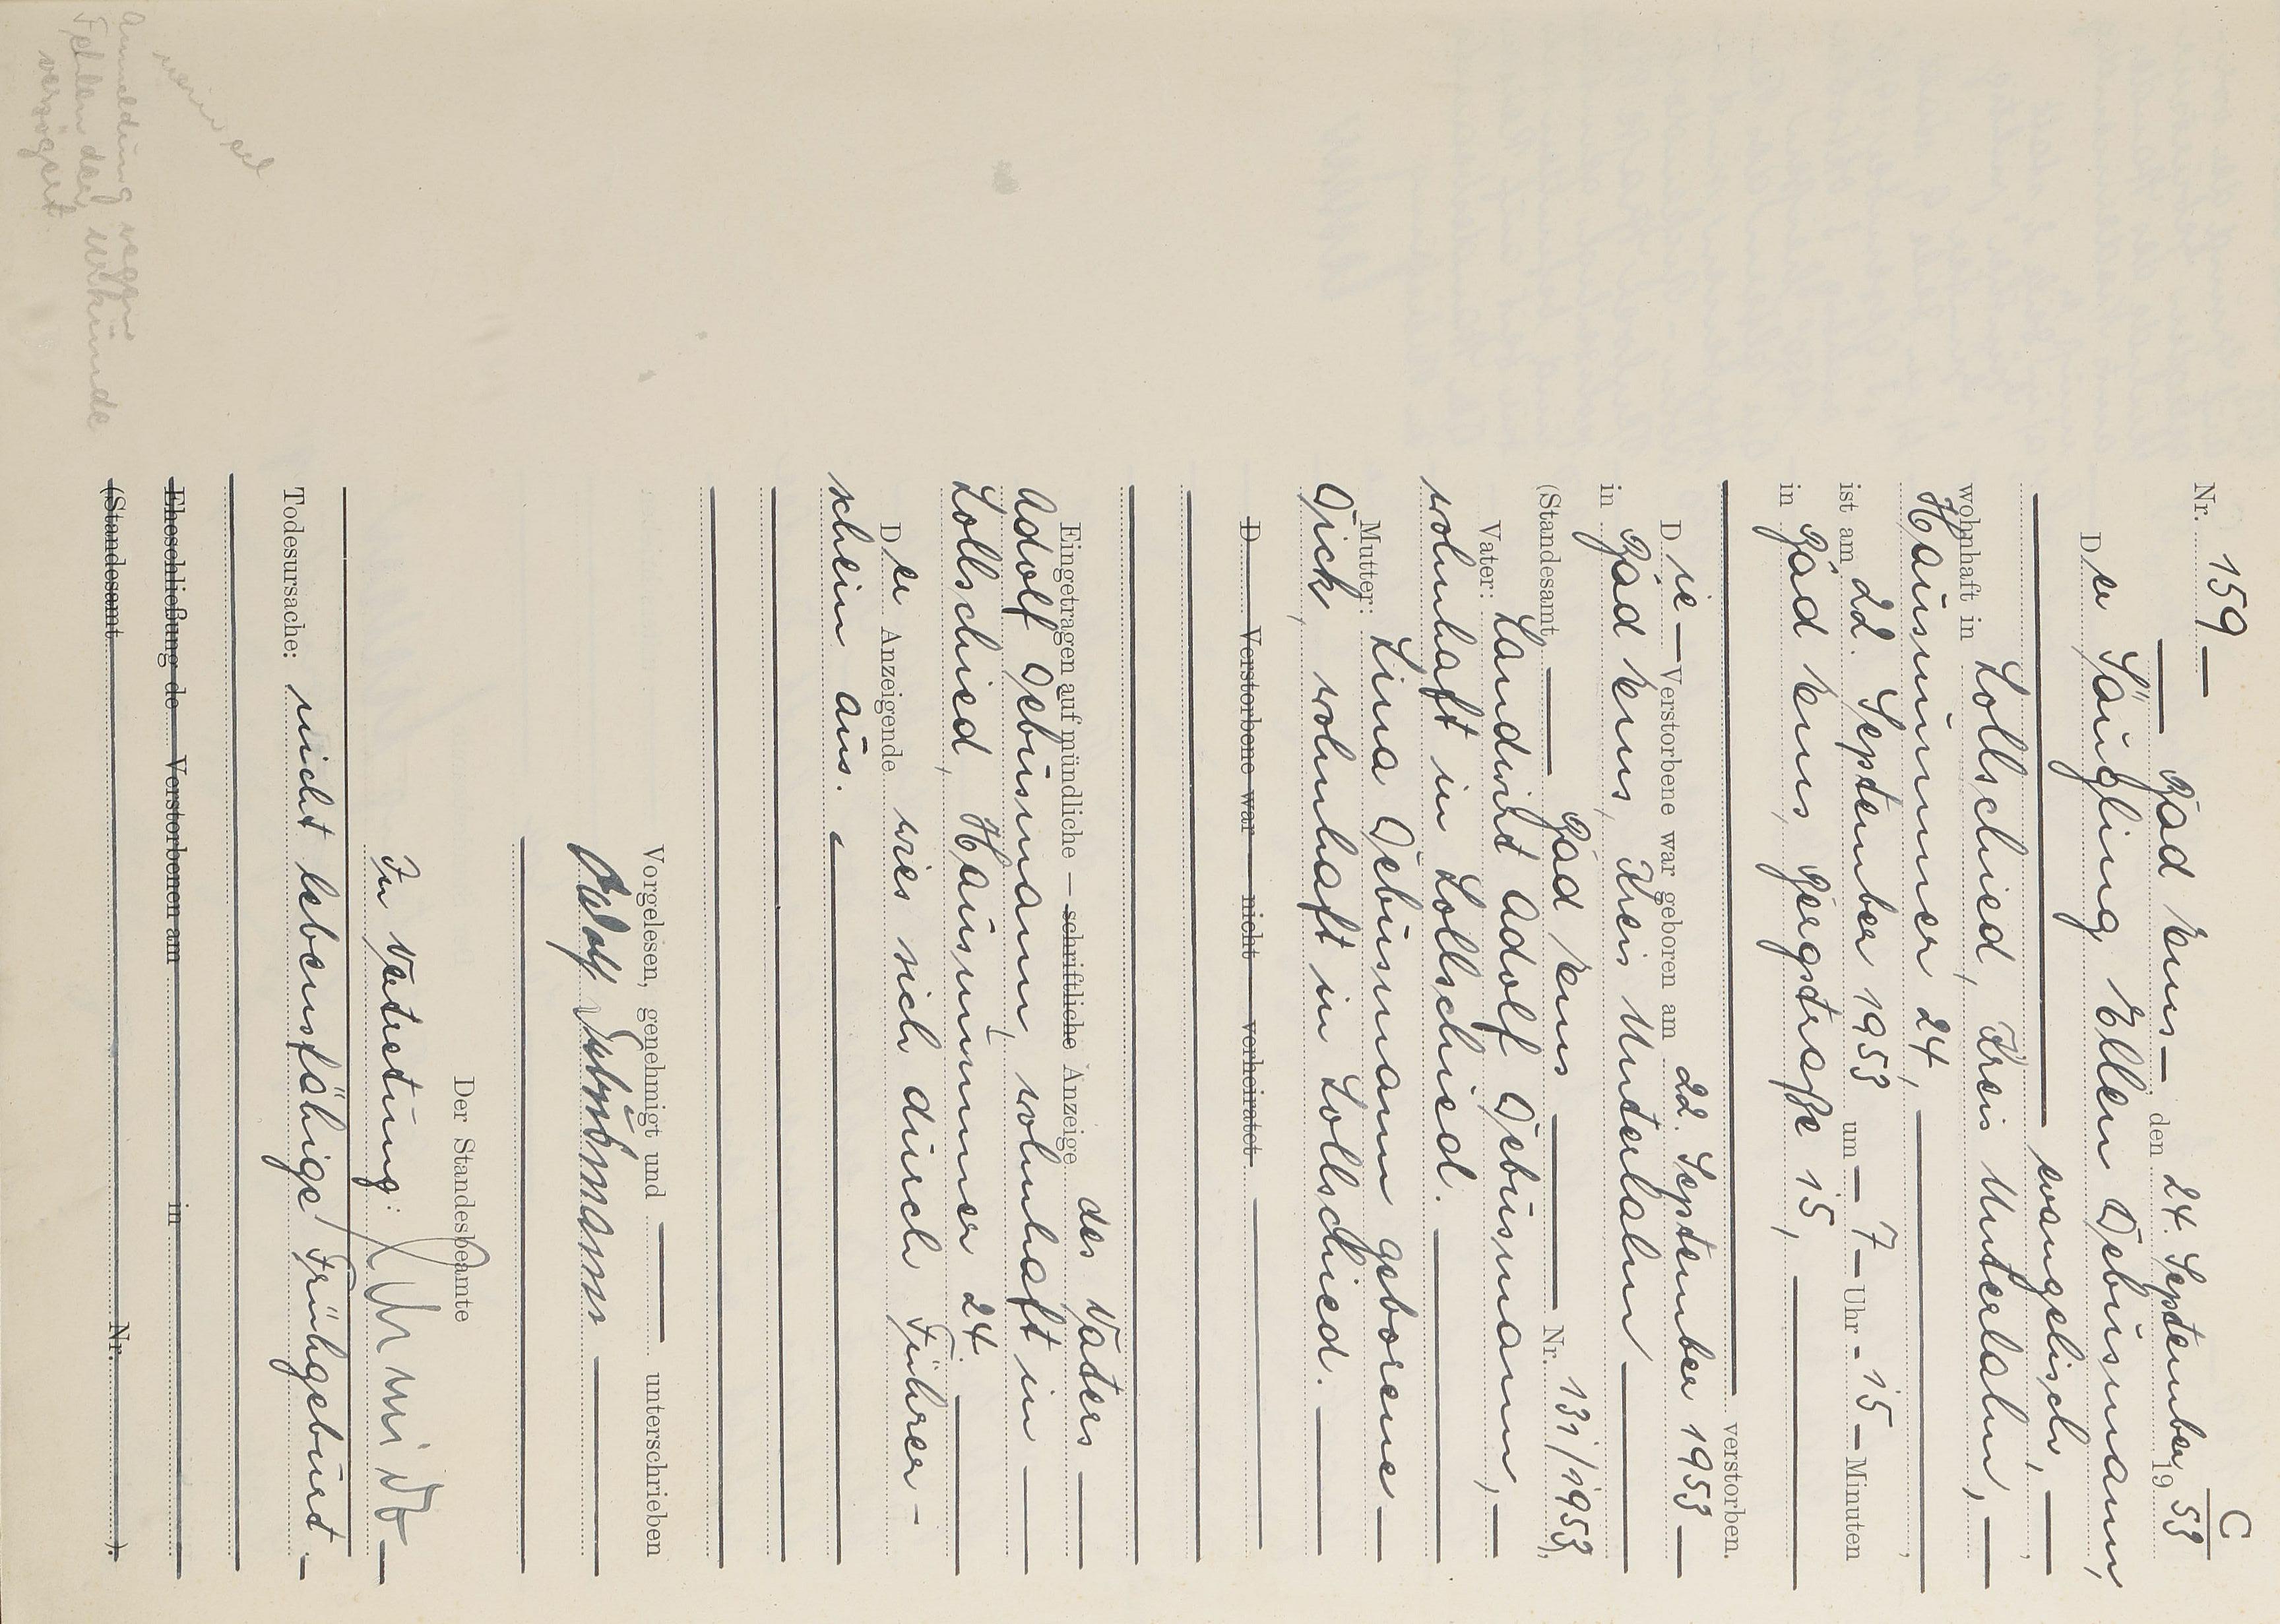 C
Nr. 159
Bad Ems den 24. September 1953
Der Säugling Ellen Gebüsmann,
evangelisch,
wohnhaft in Lollschied, Kreis Unterlahn,
Hausnummer 24,
ist am 22. September 1953 um 7 Uhr 15 Minuten
in Bad Ems, Bergstraße 15,
verstorben.
Die Verstorbene war geboren am 22. September 1953
in Bad Ems, Kreis Unterlahn
(Standesamt Bad Ems Nr. 131/1953).
Vater: Landwirt Adolf Gebüsmann,
wohnhaft in Lollschied.
Mutter: Lina Gebüsmann geborene
Gick, wohnhaft in Lollschied.
D Verstorbene war nicht verheiratet
Eingetragen auf mündliche — schriftliche Anzeige des Vaters
Adolf Gebüsmann, wohnhaft in
Lollschied, Hausnummer 24.
Der Anzeigende wies sich durch Führer-
schein aus.
Vorgelesen, genehmigt und unterschrieben
Adolf Gebüsmann
Der Standesbeamte
In Vertretung: Schmidt
Todesursache: nicht lebensfähige Frühgeburt.
Eheschließung de Verstorbenen am in
(Standesamt Nr. ).
Anmeldung wegen
Fehlen der Urkunde
verzögert